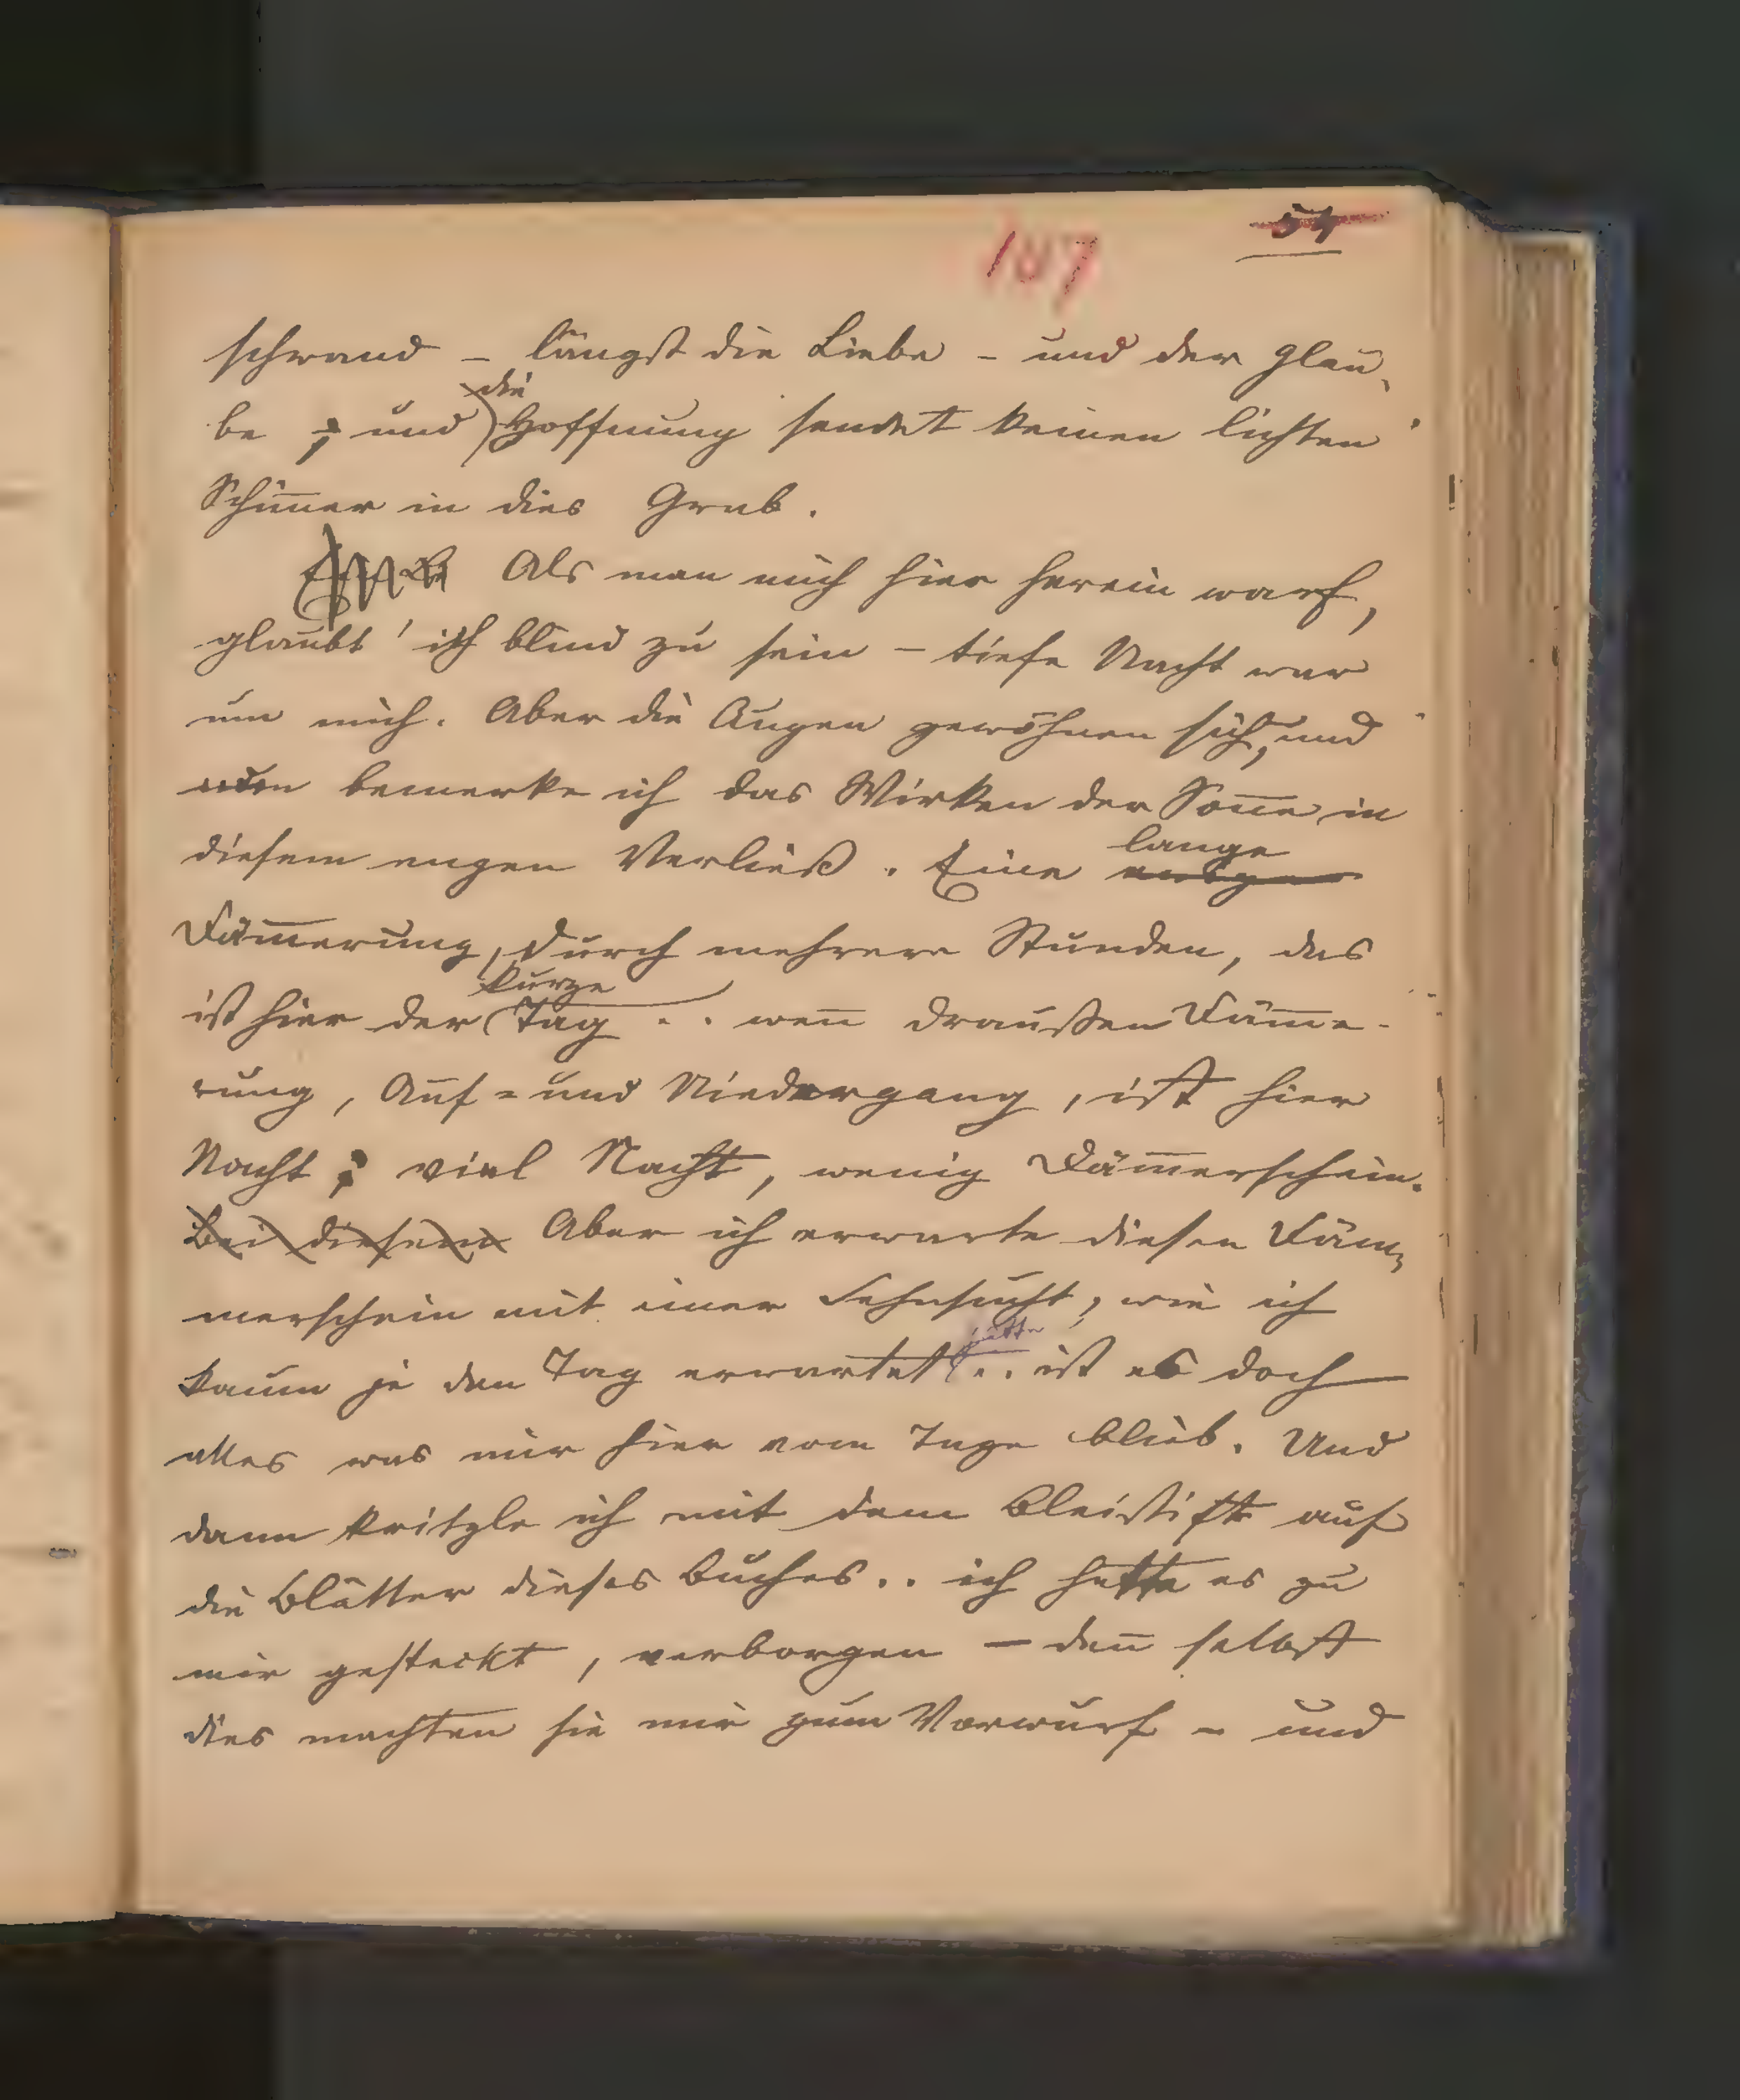 54
107
schwand – längst die Liebe – und der Glau¬
die
be ; und Hoffnung sendet keinen lichten
Schim̅er in dies Grab.
Als man mich hier herein warf,
glaubt' ich blind zu sein – tiefe Nacht war
um mich. Aber die Augen gewöhnen sich, und
nun bemerke ich das Wirken der Son̅e in
lange
diesem engen Verließ. Eine
Däm̅erung, durch mehrere Stunden, das
kurze
ist hier der Tag .. wen̅ draußen Däm̅e-
rung, Auf= und Niedergang, ist hier
Nacht; viel Nacht, wenig Däm̅erschein.
Bei diesem Aber ich erwarte diesen Däm¬
merschein mit einer Sehnsucht, wie ich
hätte
kaum je den Tag erwartet .. ist es doch
alles was mir hier vom Tage blieb. Und
dann kritzle ich mit dem Bleistift auf
die Blätter dieses Buches .. ich hatte es zu
mir gesteckt, verborgen – den̅ selbst
dies machten sie mir zum Vorwurf – und